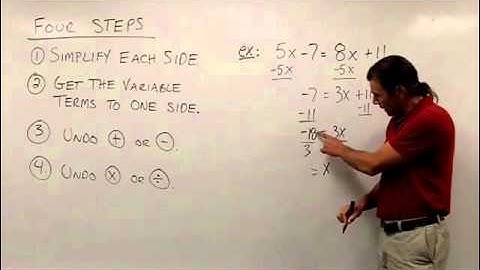 FOUR STEPS
① SIMPLIFY EACH SIDE
② GET THE VARIABLE
TERMS TO ONE SIDE.
③ UNDO ⊕ OR ⊖.
④ UNDO ⊗ OR ⊘.
ex: 5x - 7 = 8x + 11
-5x -5x
-7 = 3x + 11
-11 -11
-18 = 3x
3
= x